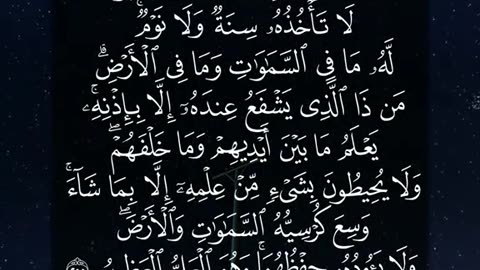 لَا تَأْخُذُهُۥ سِنَةٌ وَلَا نَوْمٌ ۚ
لَّهُۥ مَا فِى ٱلسَّمَـٰوَٰتِ وَمَا فِى ٱلْأَرْضِ ۗ
مَن ذَا ٱلَّذِى يَشْفَعُ عِندَهُۥٓ إِلَّا بِإِذْنِهِۦ ۚ
يَعْلَمُ مَا بَيْنَ أَيْدِيهِمْ وَمَا خَلْفَهُمْ ۖ
وَلَا يُحِيطُونَ بِشَىْءٍ مِّنْ عِلْمِهِۦٓ إِلَّا بِمَا شَآءَ ۚ
وَسِعَ كُرْسِيُّهُ ٱلسَّمَـٰوَٰتِ وَٱلْأَرْضَ ۖ
وَلَا يَـُٔودُهُۥ حِفْظُهُمَا ۚ وَهُوَ ٱلْعَلِىُّ ٱلْعَظِيمُ